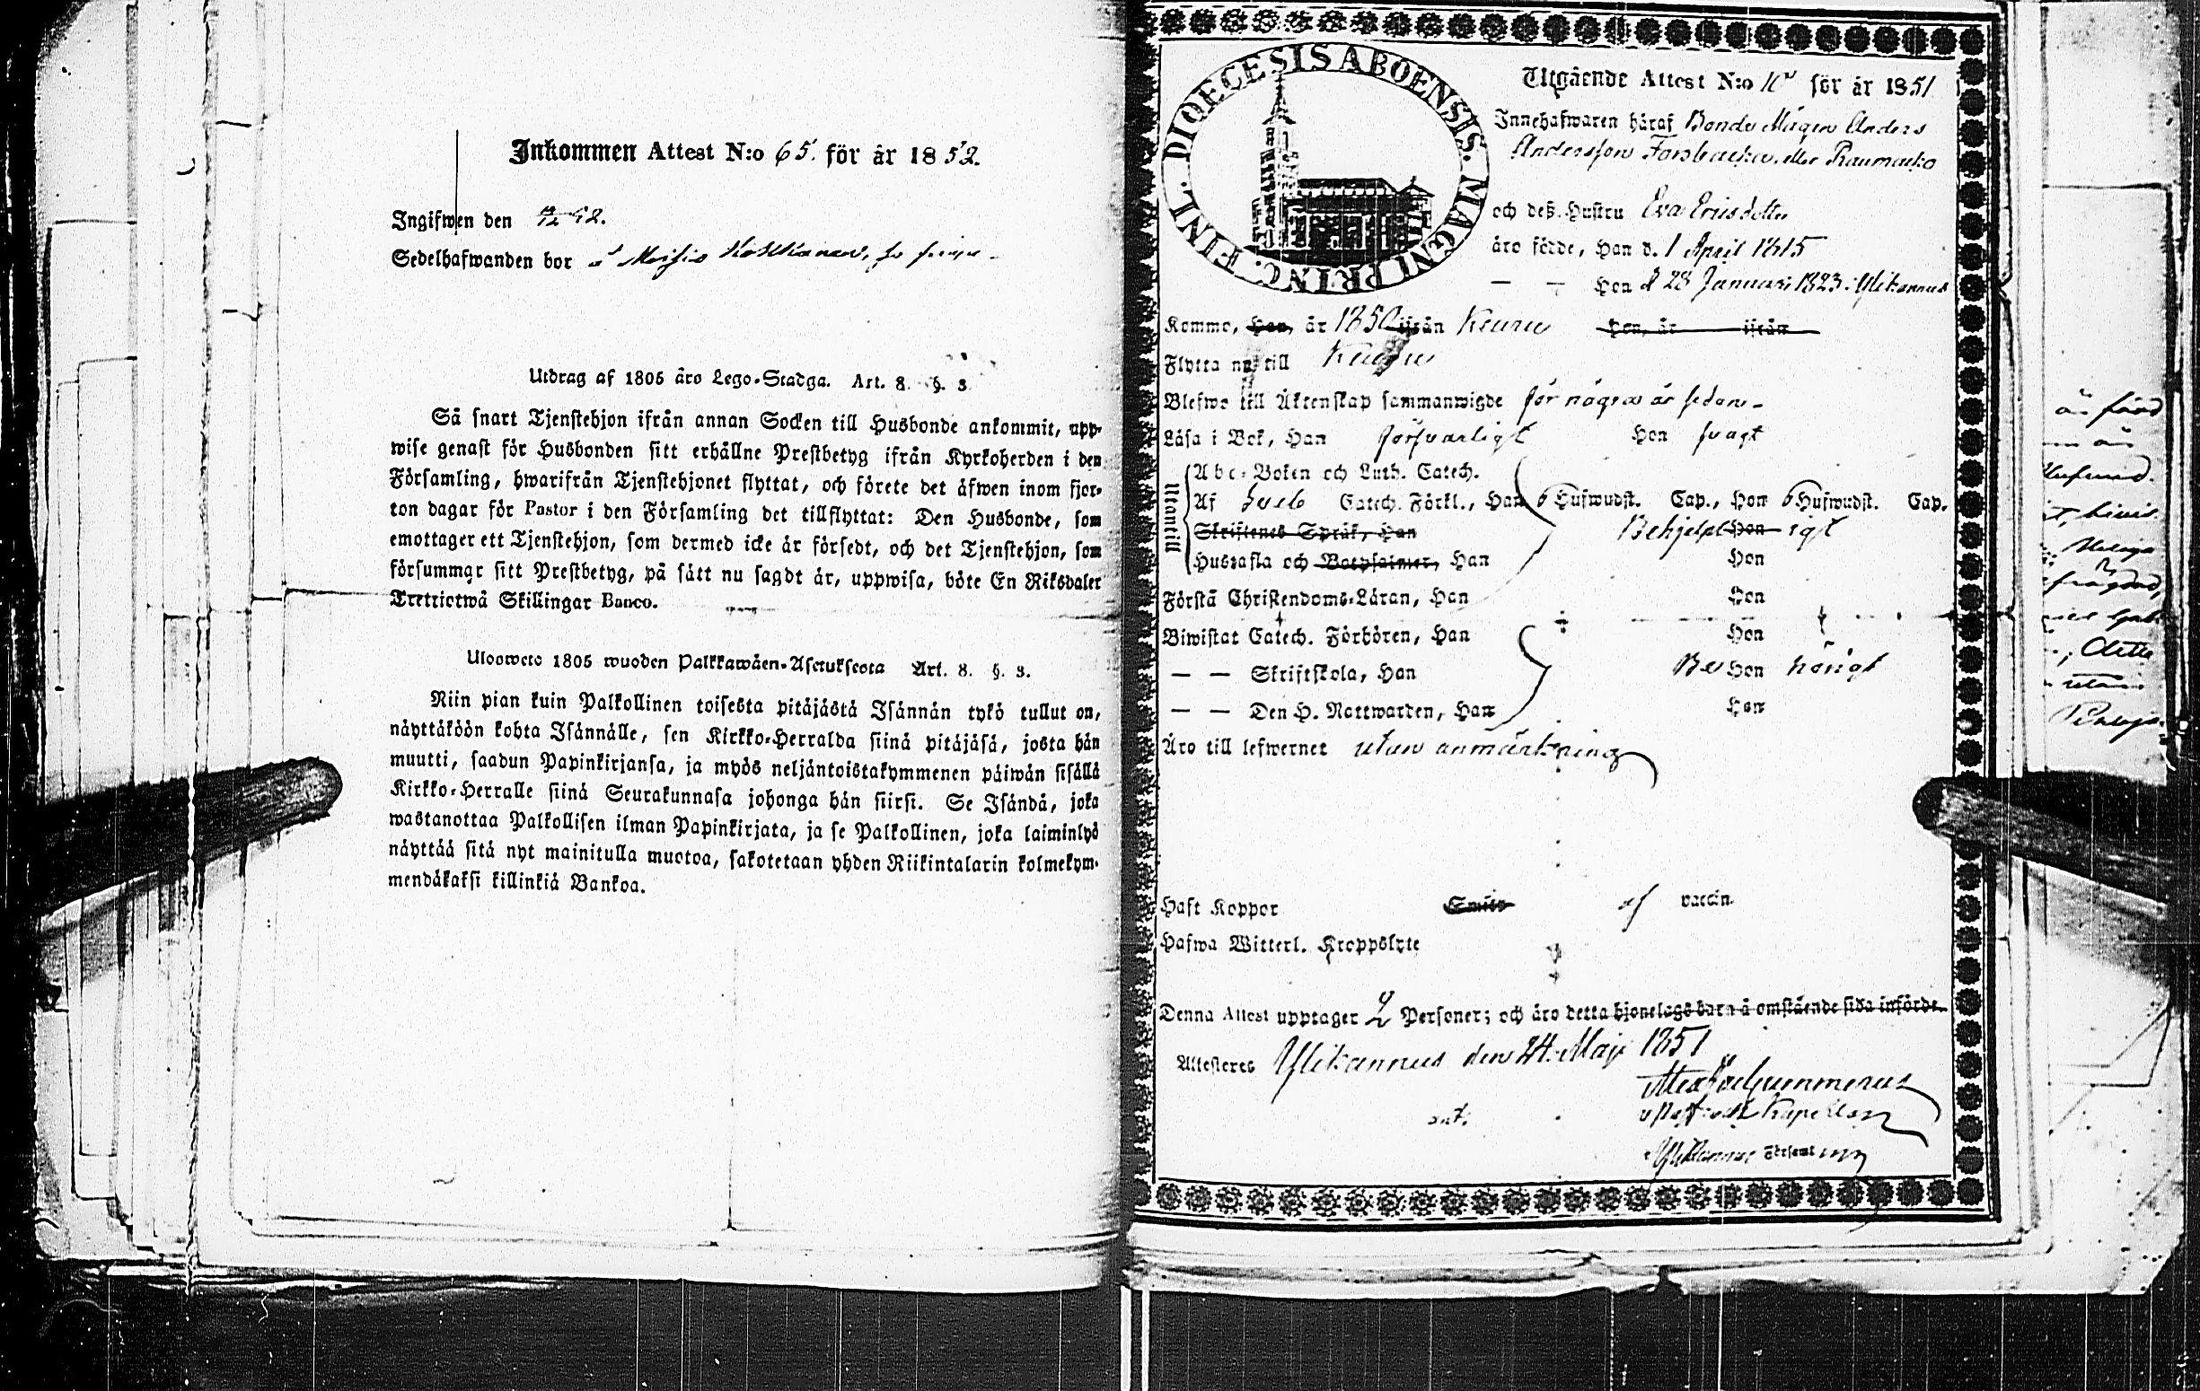 Inkommen Attest N:o 65. för år 1852.
Ingifwen den 52.
Sedelhafwanden bor å
Utdrag af 1805 års Lego-Stadga. Art. 8. §. 3.
Så snart Tjenstehjon ifrån annan Socken till Husbonde ankommit, upp-
wise genast för Husbonden sitt erhållne Prestbetyg ifrån Kyrkoherden i den
Församling, hwarifrån Tjenstehjonet flyttat, och förete det äfwen inom fjor-
ton dagar för Pastor i den Församling det tillflyttat: Den Husbonde, som
emottager ett Tjenstehjon, som dermed icke är försedt, och det Tjenstehjon, som
försummar sitt Prestbetyg, på sätt nu sagdt är, uppwisa, böte En Riksdaler
Trettiotwå Skillingar Banco.
Uloswete 1805 wuoden Palkkawäen-Asetuksesta Art. 8. §. 3.
Niin pian kuin Palkollinen toisesta pitäjästä Isännän tykö tullut on,
näyttäköön kohta Isännälle, sen Kirkko-Herralda siinä pitäjäsä, josta hän
muutti, saadun Papinkirjansa, ja myös neljäntoistakymmenen päiwän sisällä
Kirkko-Herralle siinä Seurakunnasa johonga hän siirsi. Se Isändä, joka
wastanottaa Palkollisen ilman Papinkirjata, ja se Palkollinen, joka laiminlyö
näyttää sitä nyt mainitulla muotoa, sakotetaan yhden Riikintalarin kolmekym-
mendäkaksi killinkiä Bankoa.
DIOECESIS ABOENSIS. MAGNI PRINC. FINL.
Utgående Attest N:o för år 1851
Innehafwaren häraf Bonde Mågen Anders
Andersson Forsbacka eller Raumako
och deß Hustru Eva Ericsdotter
äro födde, Han d. 1 April 1815
— — Hon d 28 Januari 1823. Ylikannus
Kommo, Han, år 1850 ifrån Keuru Hon, år ifrån
Flytta nu till Keuru
Blefwo till Äktenskap sammanwigde för några år sedan
Läsa i Bok, Han försvarligt Hon svagt
Utantill
Abc-Boken och Luth. Catech.
Af Catech. Förkl., Han 6 Hufwudst. Cap., Hon 6 Hufwudst. Cap.
Skriftenes Språk, Han Behjelpl Hon igt
Hustafla och Botpsalmer, Han Hon
Förstå Christendoms-Läran, Han Hon
Biwistat Catech. Förhören, Han Hon
— — Skriftskola, Han Be Hon hörigt
— — Den H. Nattwarden, Han Hon
Äro till lefwernet utan anmärkning
Haft Koppor Smitt af vaccin.
Hafwa Witterl. Kroppslyte
Denna Attest upptager 2 Personer; och äro detta hjonelags barn å omstående sida införde.
Attesteres Ylikannus den 24 Maji 1851
Kapellan
Ylikannus Församl